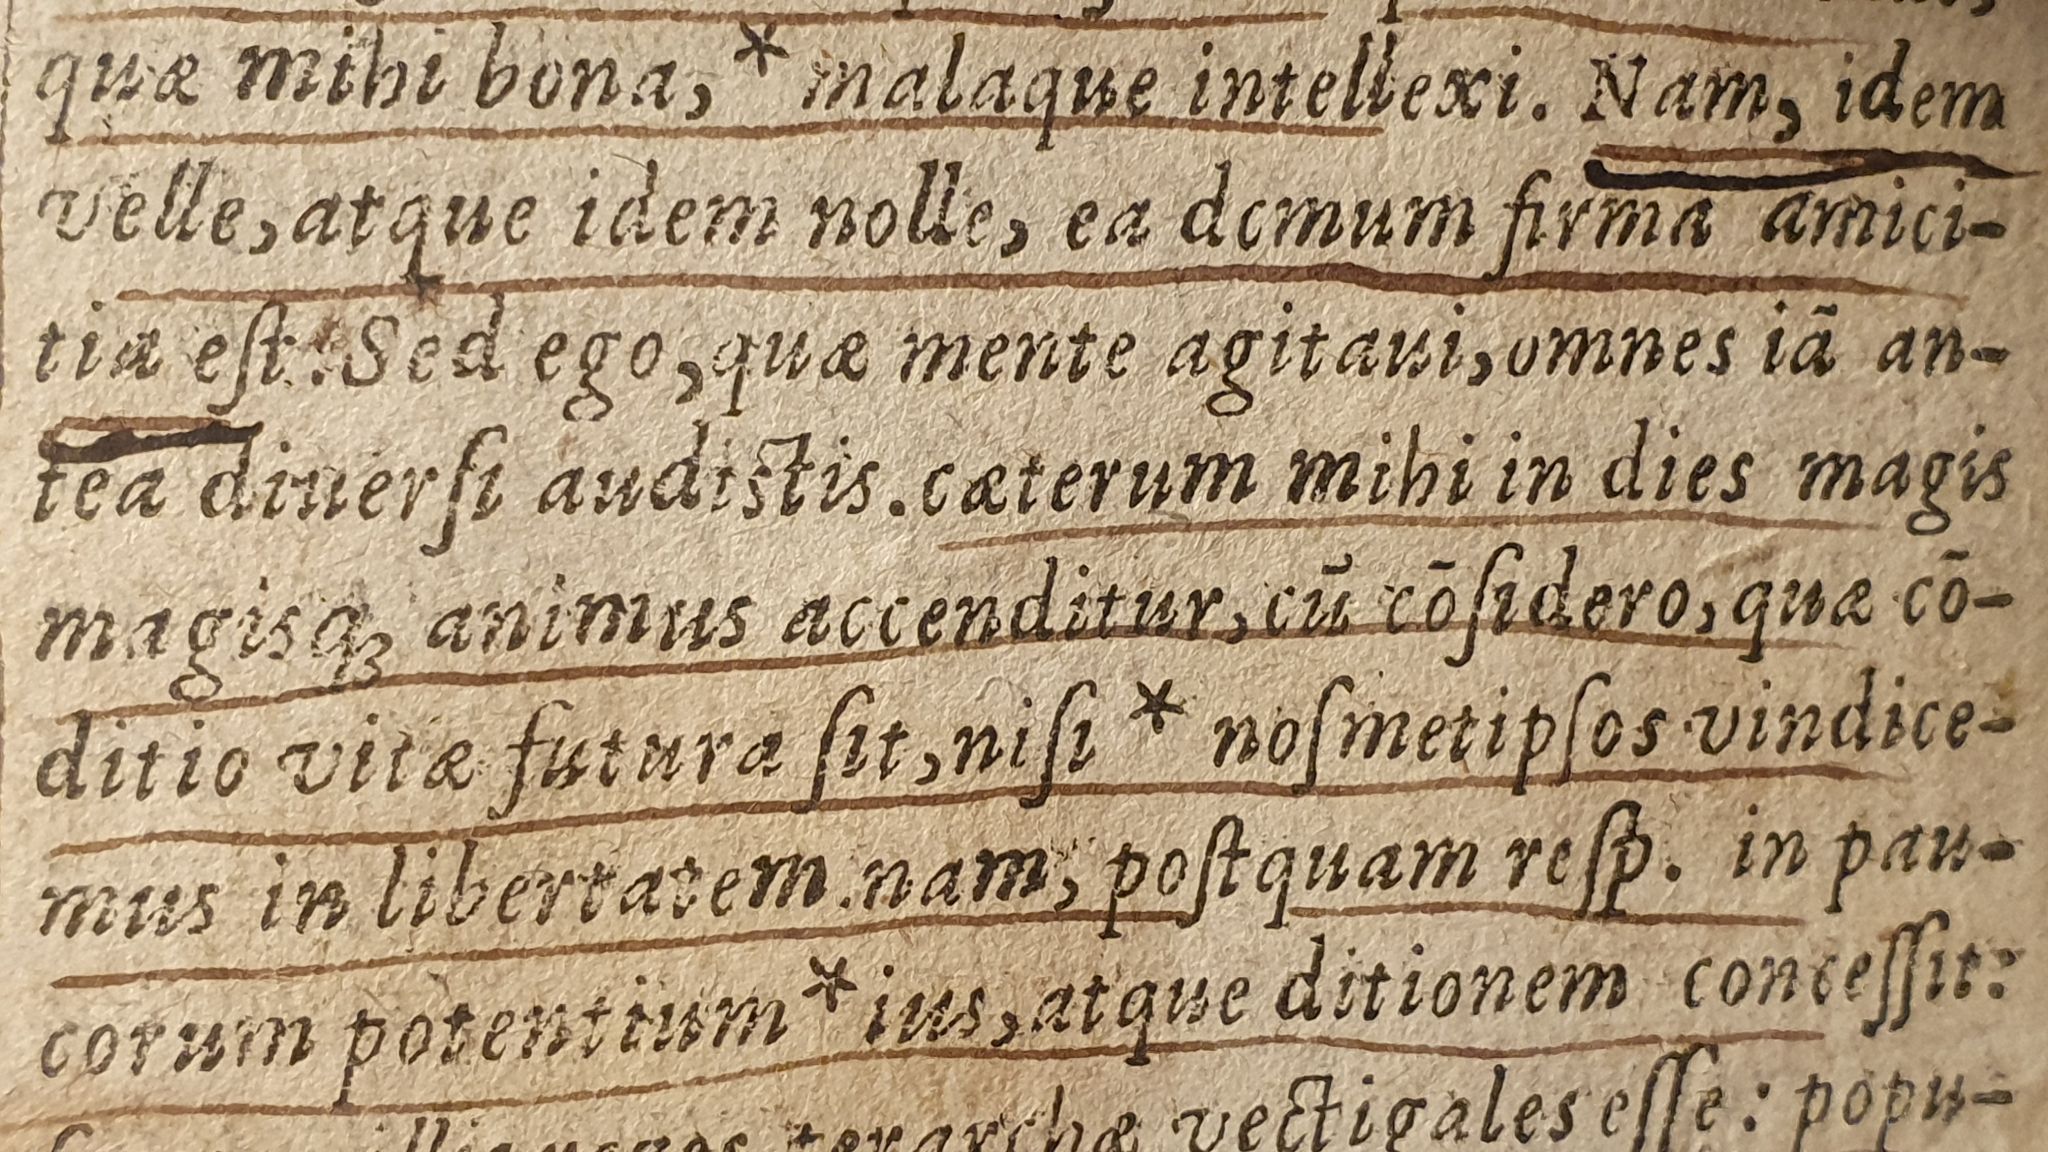 quæ mihi bona, * malaque intellexi. Nam, idem
velle, atque idem nolle, ea domum firma amici-
tia eſt. Sed ego, quæ mente agitaui, omnes iā an-
tea diuerſi audiſtis. cæterum mihi in dies magis
magisqꝫ animus accenditur, cū cōſidero, quæ cō-
ditio vitæ futura ſit, niſi * noſmetipſos vindice-
mus in libertatem. nam, poſtquam reſp. in pau-
corum potentium * ius, atque ditionem conceſſit:
tetrarchæ vectigales eſſe: popu-